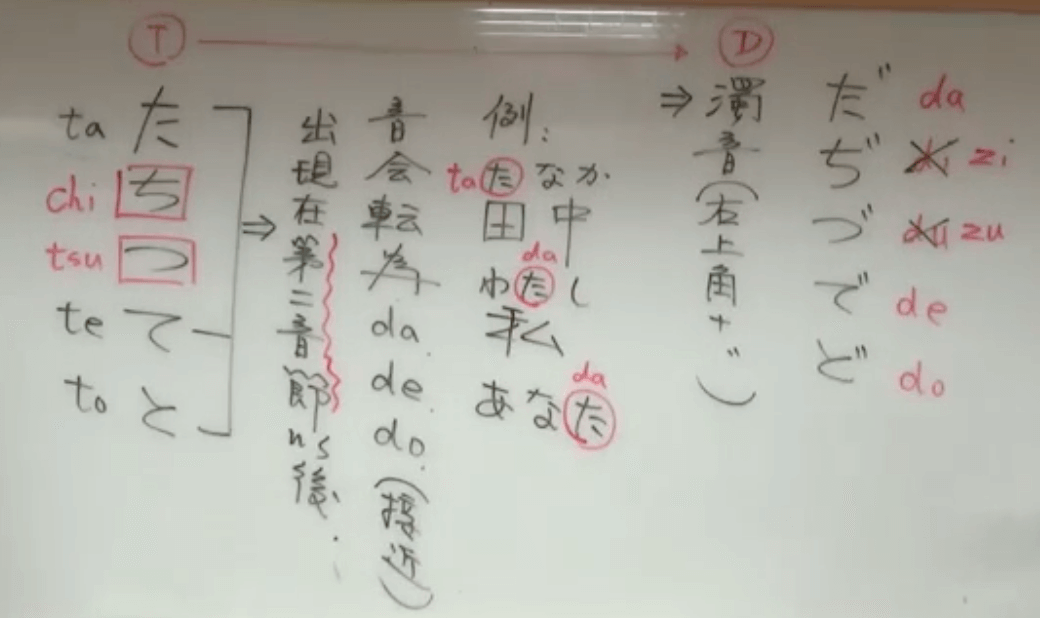 T → D
ta た
chi ち
tsu つ
te て
to と
⇒
出現在第二音節ns後.
音会転為da. de. do.(接近)
例:
ta たなか
田中
da
わたし
私
da
あなた
⇒ 濁音(右上角+〃)
だ da
ぢ zi
づ zu
で de
ど do